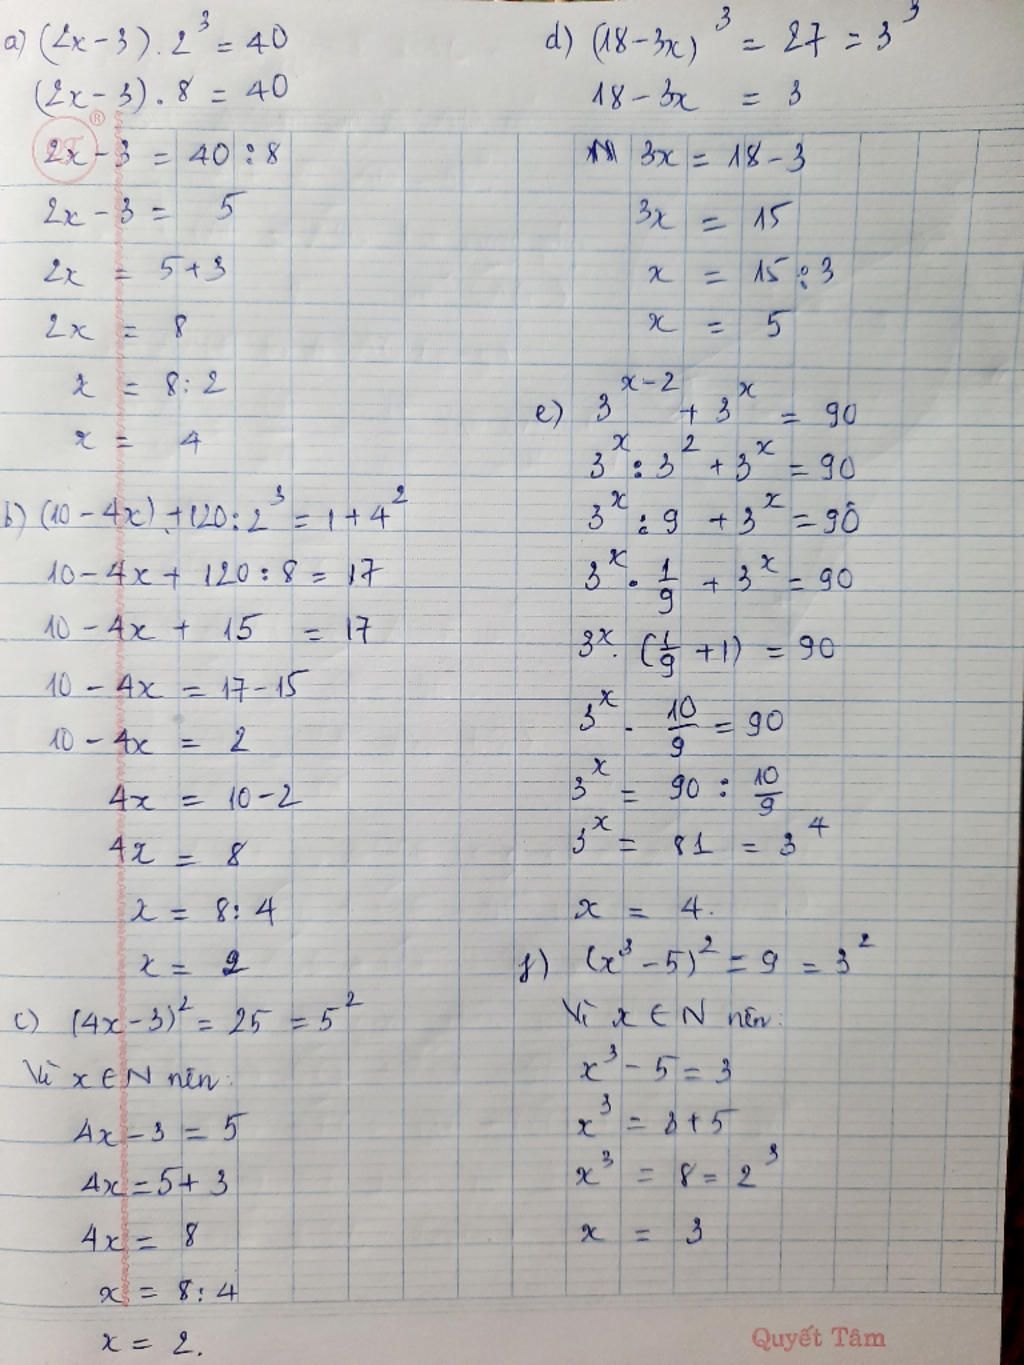 a) (2x-3).2³ = 40
(2x-3).8 = 40
2x-3 = 40:8
2x-3 = 5
2x = 5+3
2x = 8
x = 8:2
x = 4
b) (10-4x)+120:2³ = 1+4²
10-4x+120:8 = 17
10-4x+15 = 17
10-4x = 17-15
10-4x = 2
4x = 10-2
4x = 8
x = 8:4
x = 2
c) (4x-3)² = 25 = 5²
Vì x∈N nên:
4x-3 = 5
4x = 5+3
4x = 8
x = 8:4
x = 2.
d) (18-3x)³ = 27 = 3³
18-3x = 3
3x = 18-3
3x = 15
x = 15:3
x = 5
e) 3ˣ⁻² + 3ˣ = 90
3ˣ:3² + 3ˣ = 90
3ˣ:9 + 3ˣ = 90
3ˣ.1/9 + 3ˣ = 90
3ˣ.(1/9+1) = 90
3ˣ.10/9 = 90
3ˣ = 90:10/9
3ˣ = 81 = 3⁴
x = 4.
f) (x³-5)² = 9 = 3²
Vì x∈N nên:
x³-5 = 3
x³ = 3+5
x³ = 8 = 2³
x = 3
Quyết Tâm